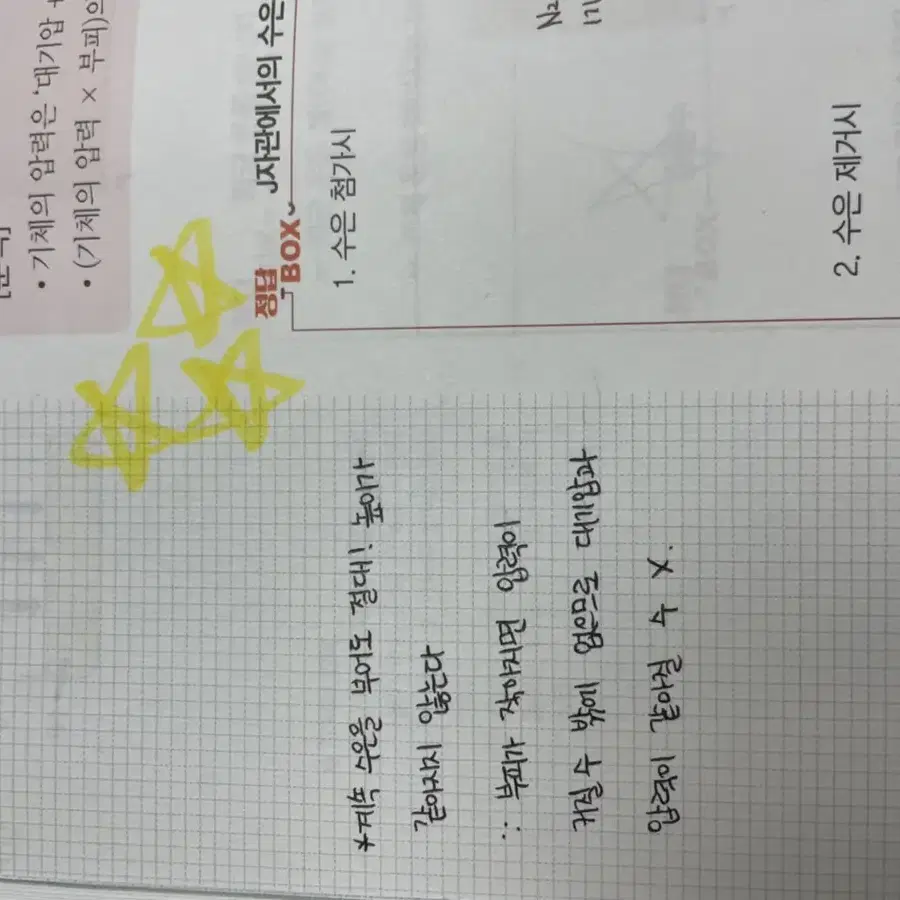 • 기체의 압력은 '대기압 +
• (기체의 압력 × 부피)의
정답 BOX J자관에서의 수은
1. 수은 첨가시
N₂
1기
2. 수은 제거시
*계속 수은을 부어도 절대! 높이가
같아지지 않는다
∴ 부피가 작아지면 압력이
커질 수 밖에 없음으로 대기압과
압력이 같아질 수 X.